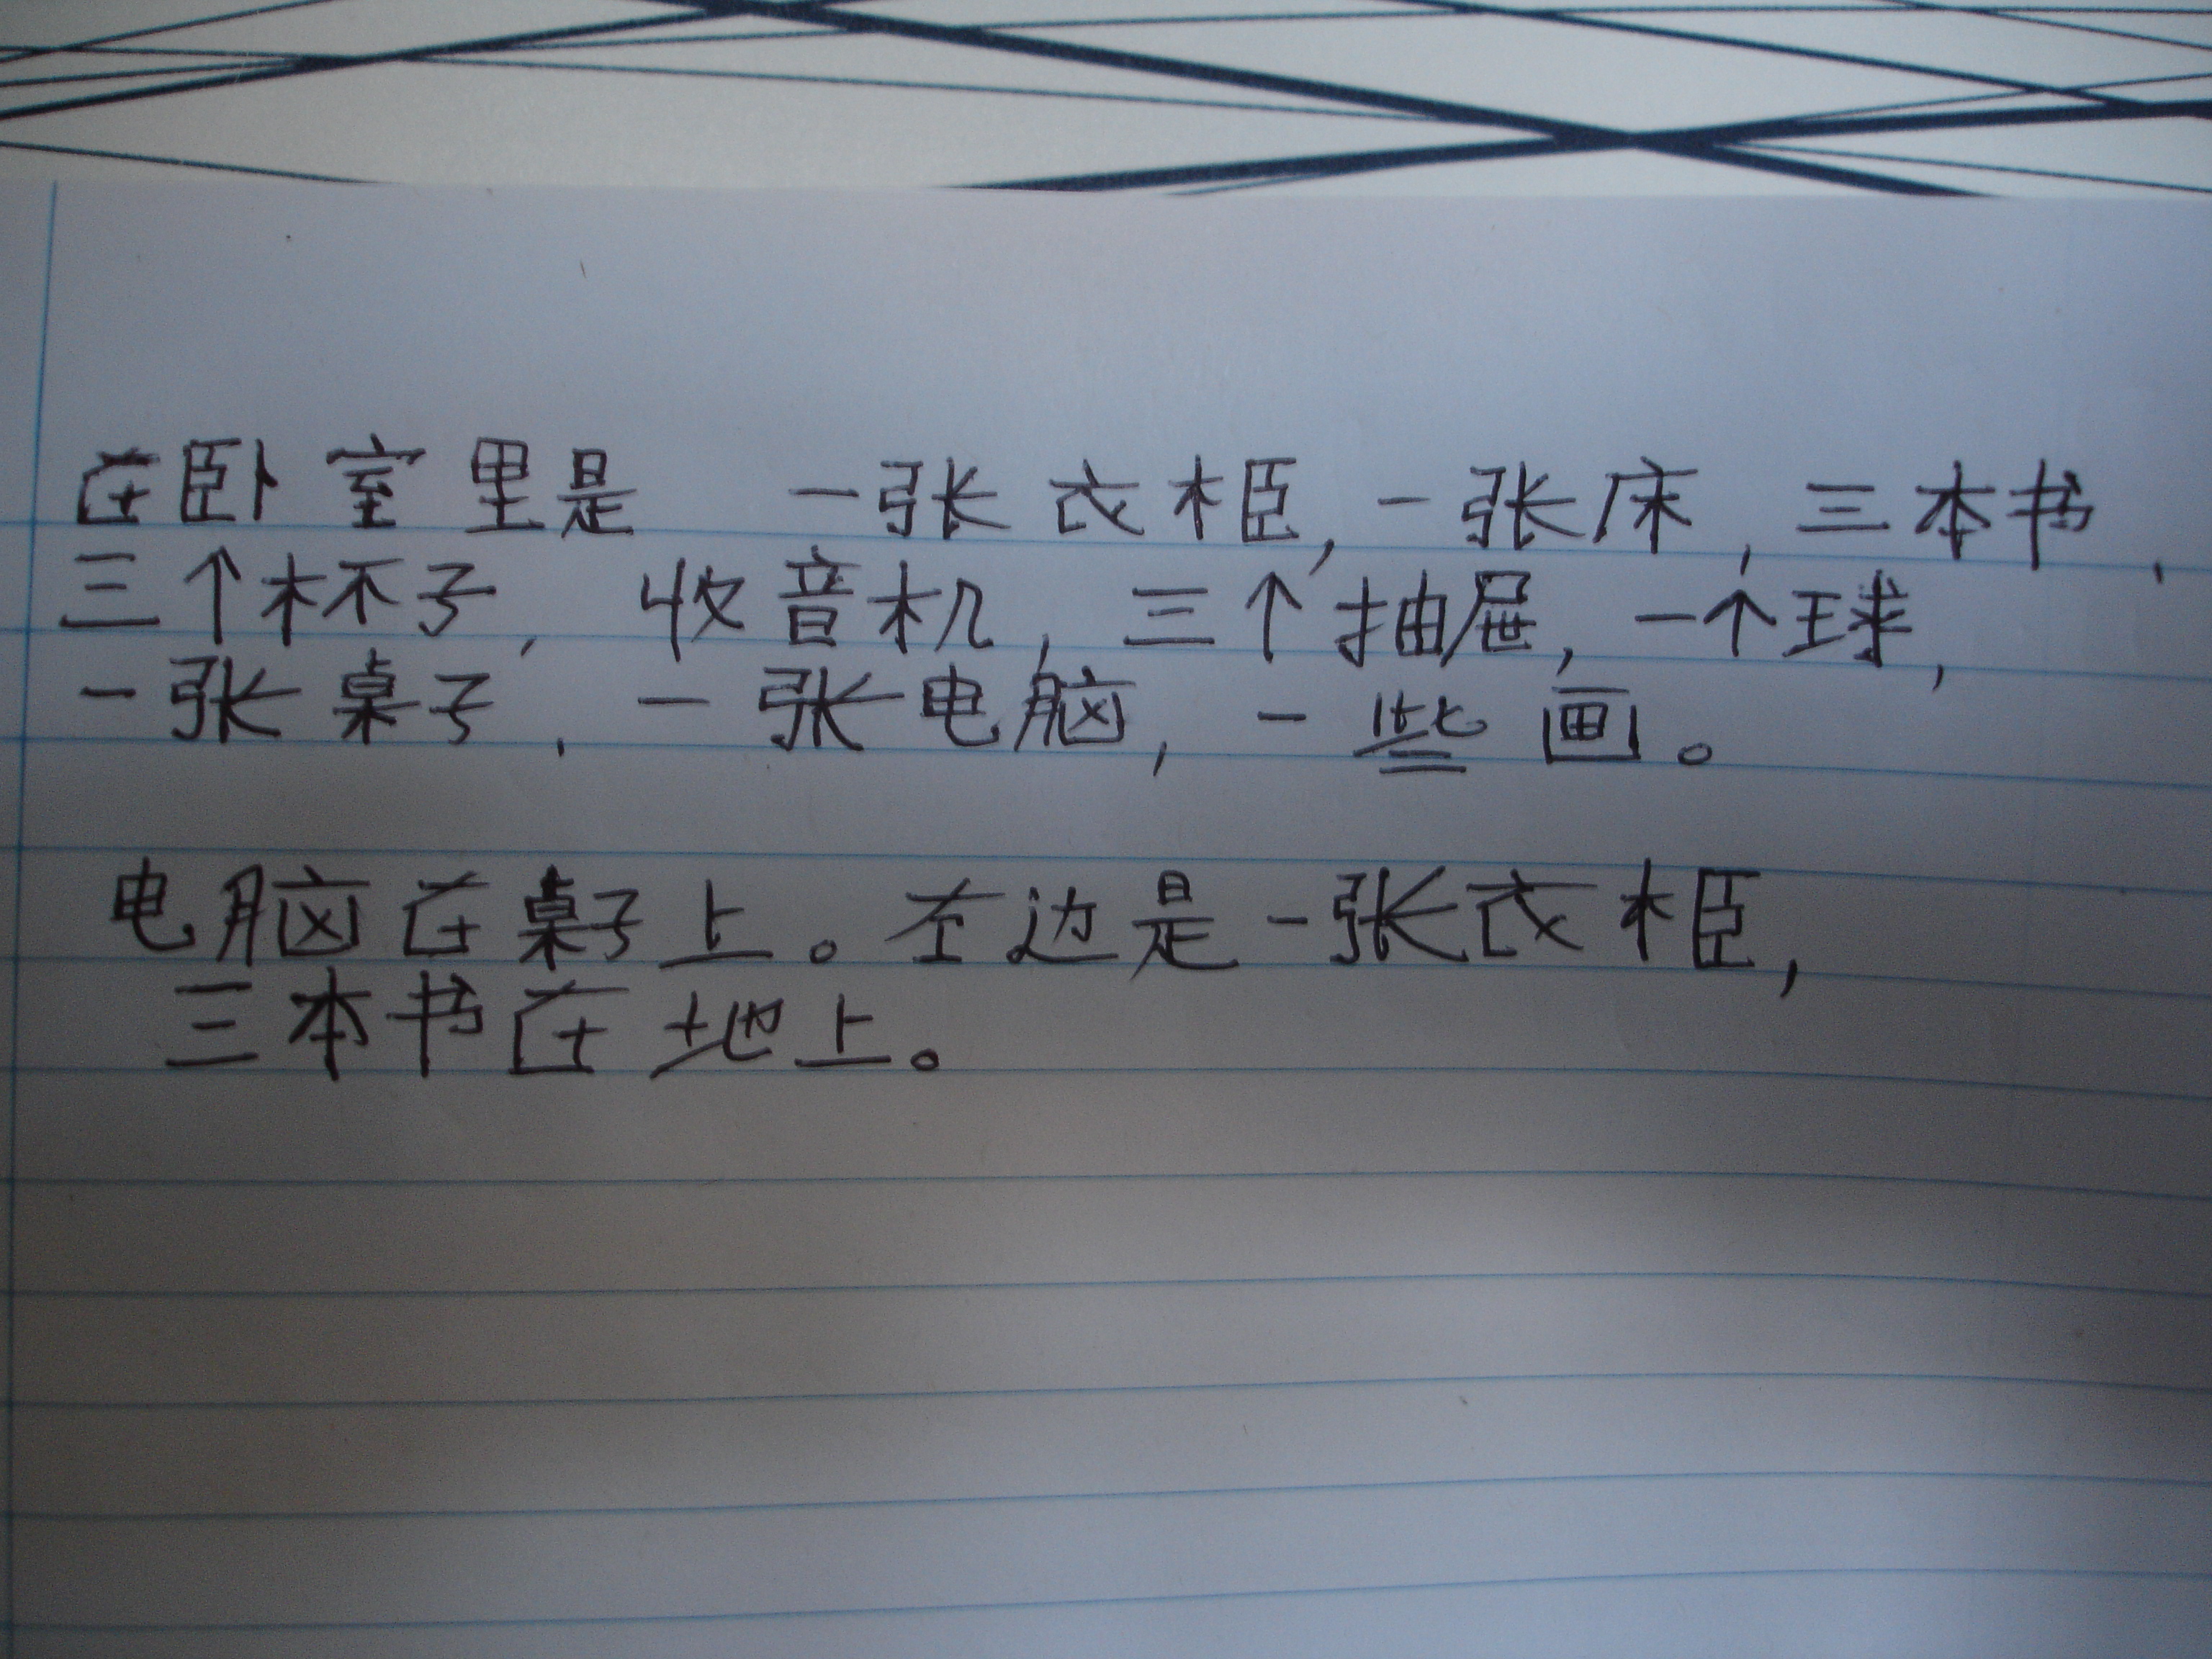 在卧室里是 一张衣柜,一张床,三本书,
三个杯子, 收音机,三个抽屉,一个球,
一张桌子,一张电脑,一些画。
电脑在桌子上。左边是一张衣柜,
三本书在地上。